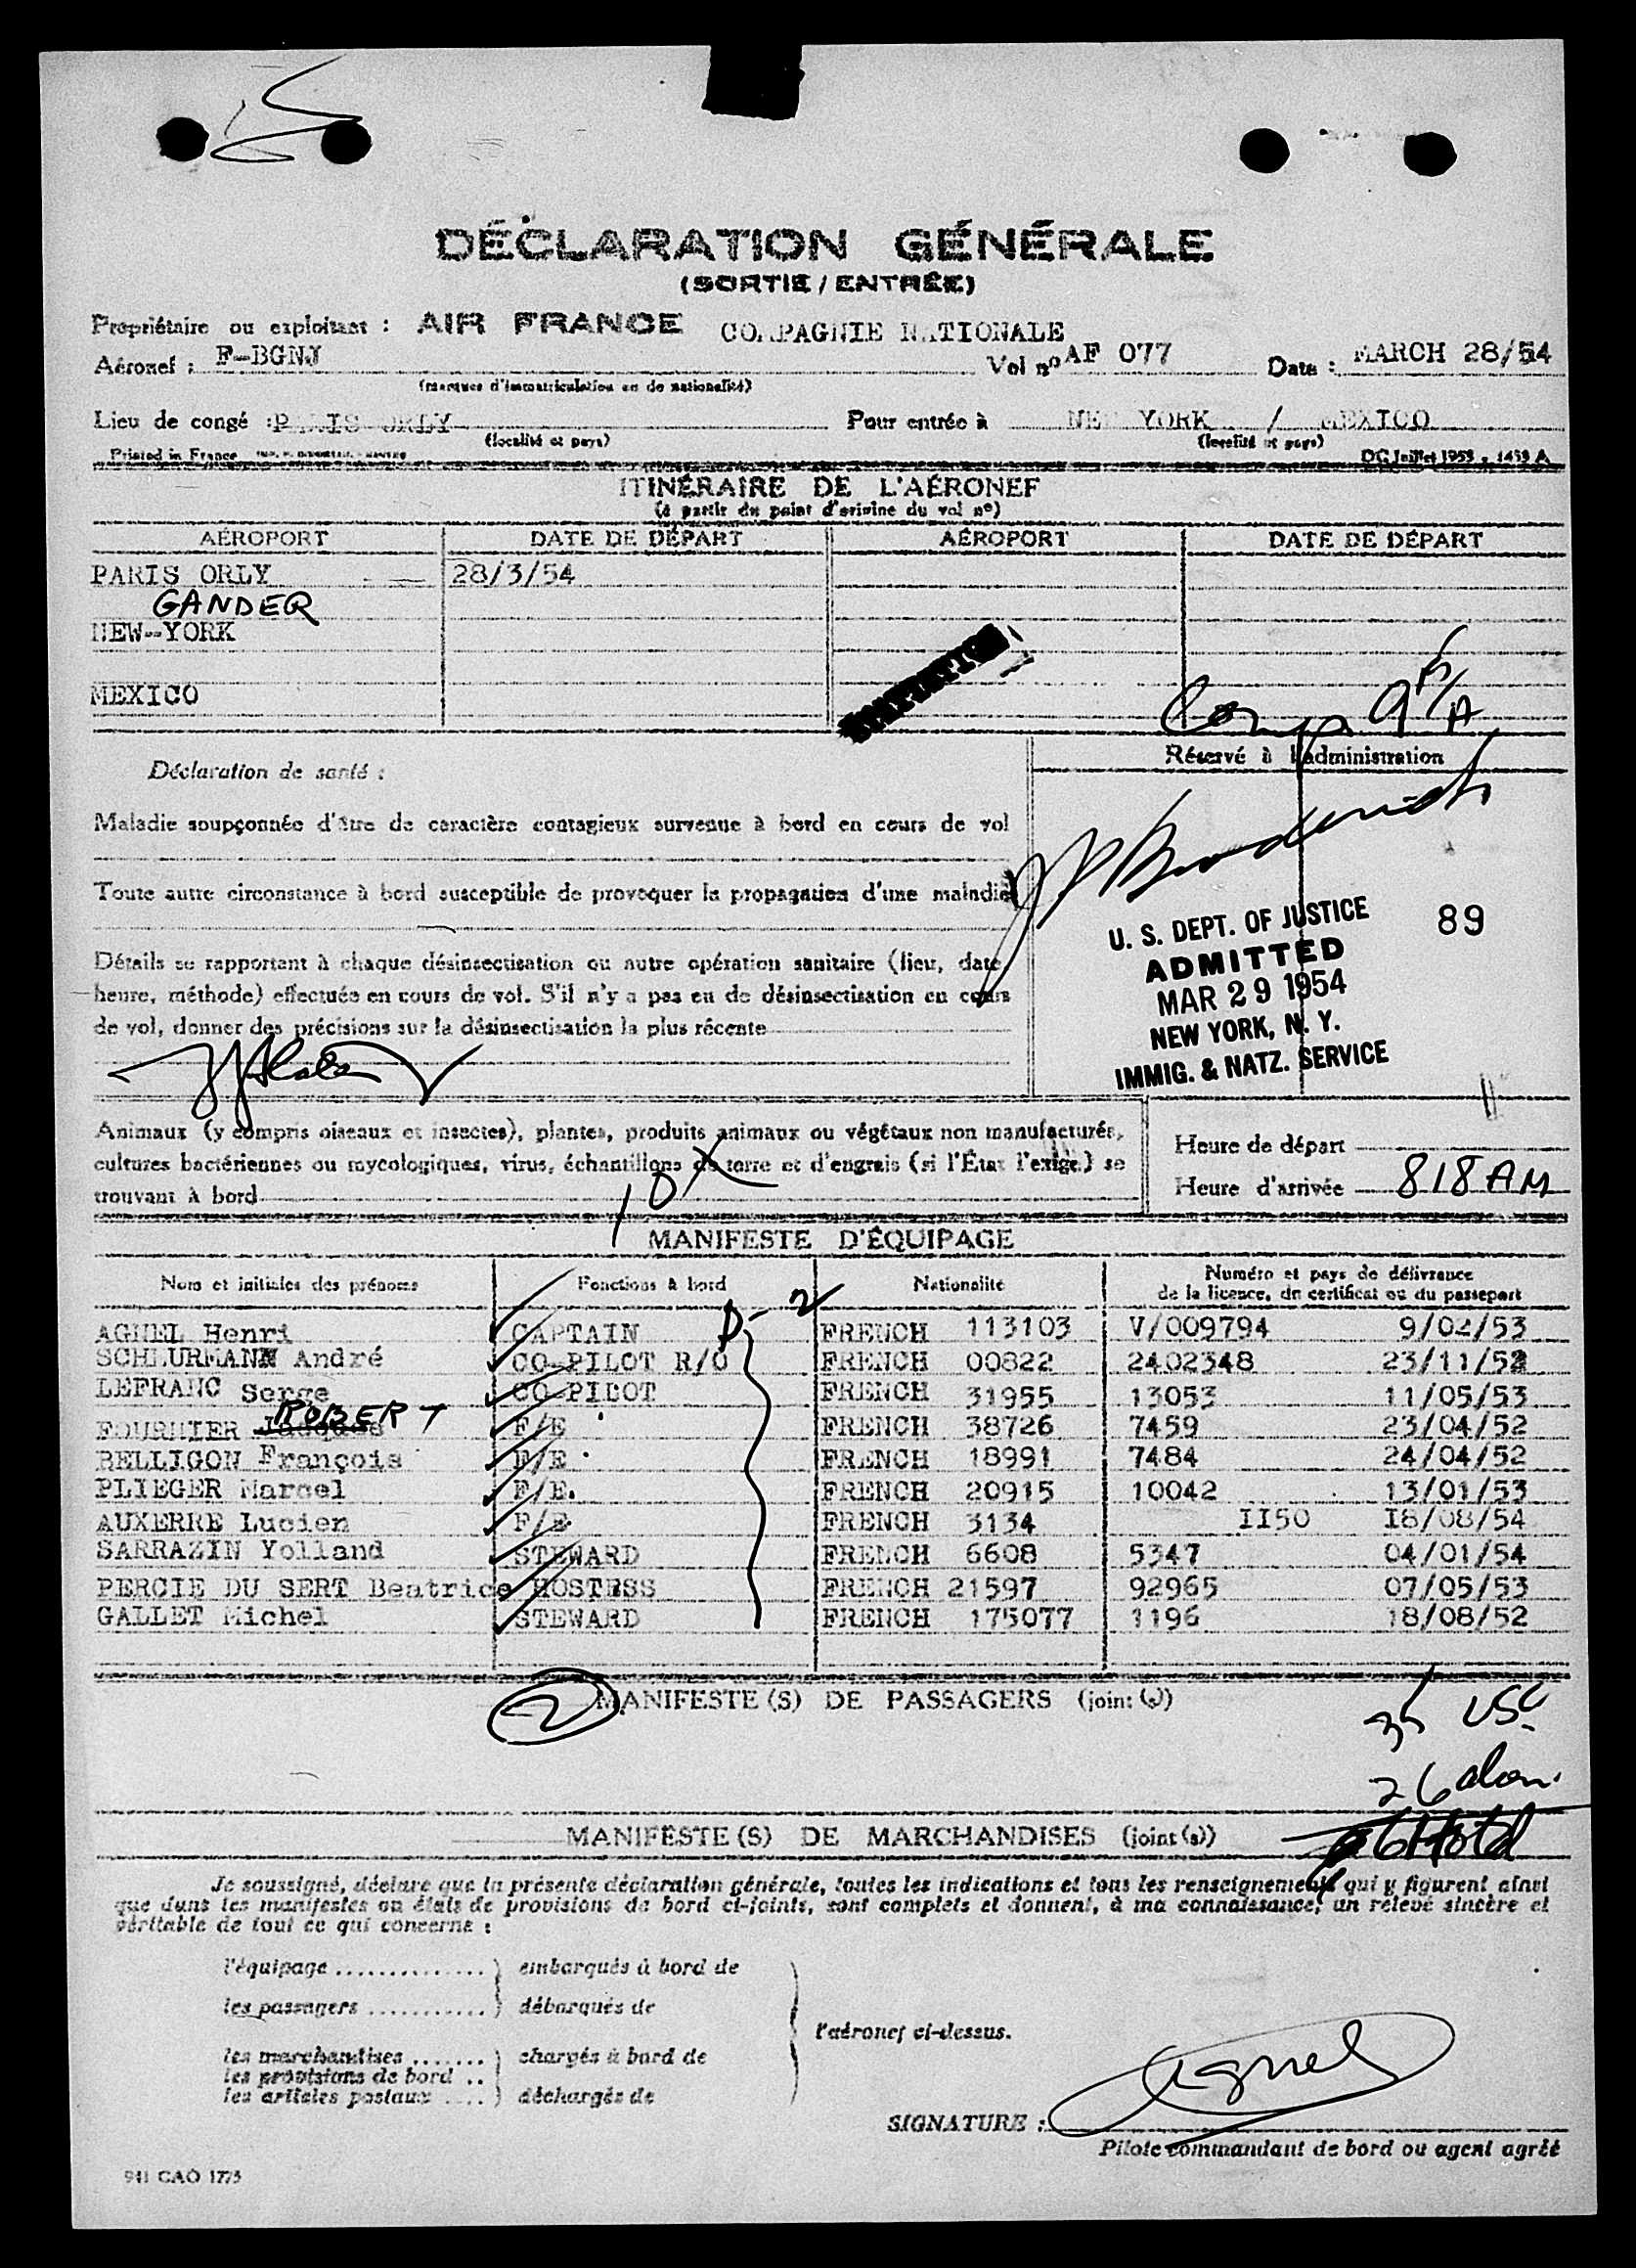 DÉCLARATION GÉNÉRALE
(SORTIE / ENTRÉE)
Propriétaire ou exploitant : AIR FRANCE COMPAGNIE NATIONALE
Aéronef : F-BGNJ Vol nº AF 077 Date : MARCH 28/54
(marques d'immatriculation et de nationalité)
Lieu de congé : PARIS ORLY Pour entrée à NEW YORK / MEXICO
(localité et pays) (localité et pays)
Printed in France DG Juillet 1953 - 1453 A
ITINÉRAIRE DE L'AÉRONEF
(à partir du point d'origine du vol nº)
AÉROPORT DATE DE DÉPART AÉROPORT DATE DE DÉPART
PARIS ORLY 28/3/54
GANDER
NEW-YORK
MEXICO
Comp 9 P/A
Réservé à l'administration
Déclaration de santé :
Maladie soupçonnée d'être de caractère contagieux survenue à bord en cours de vol
Toute autre circonstance à bord susceptible de provoquer la propagation d'une maladie
U. S. DEPT. OF JUSTICE 89
ADMITTED
MAR 29 1954
NEW YORK, N. Y.
IMMIG. & NATZ. SERVICE
Détails se rapportant à chaque désinsectisation ou autre opération sanitaire (lieu, date,
heure, méthode) effectuée en cours de vol. S'il n'y a pas eu de désinsectisation en cours
de vol, donner des précisions sur la désinsectisation la plus récente
Animaux (y compris oiseaux et insectes), plantes, produits animaux ou végétaux non manufacturés,
cultures bactériennes ou mycologiques, virus, échantillons de terre et d'engrais (si l'État l'exige) se
trouvant à bord
Heure de départ
Heure d'arrivée 818 AM
10X
MANIFESTE D'ÉQUIPAGE
Nom et initiales des prénoms Fonctions à bord Nationalité Numéro et pays de délivrance
de la licence, du certificat ou du passeport
D-2
AGNEL Henri CAPTAIN FRENCH 113103 V/009794 9/02/53
SCHLURMANN André CO-PILOT R/O FRENCH 00822 2402348 23/11/52
LEFRANC Serge CO-PILOT FRENCH 31955 13053 11/05/53
FOURNIER Jacques ROBERT F/E FRENCH 38726 7459 23/04/52
BELLIGON François F/E FRENCH 18991 7484 24/04/52
PLIEGER Marcel F/E. FRENCH 20915 10042 13/01/53
AUXERRE Lucien F/E FRENCH 3134 II50 I8/08/54
SARRAZIN Yolland STEWARD FRENCH 6608 5347 04/01/54
PERCIE DU SERT Beatrice HOSTESS FRENCH 21597 92965 07/05/53
GALLET Michel STEWARD FRENCH 175077 1196 18/08/52
2 MANIFESTE (S) DE PASSAGERS (joint (s))
35 USC
26 alien
MANIFESTE (S) DE MARCHANDISES (joint (s))
61 Total
Je soussigné, déclare que la présente déclaration générale, toutes les indications et tous les renseignements qui y figurent ainsi
que dans les manifestes ou états de provisions de bord ci-joints, sont complets et donnent, à ma connaissance, un relevé sincère et
véritable de tout ce qui concerne :
l'équipage .............. } embarqués à bord de
les passagers ........... } débarqués de
l'aéronef ci-dessus.
les marchandises ....... } chargés à bord de
les provisions de bord ..
les articles postaux .... } déchargés de
SIGNATURE : Agnel
Pilote commandant de bord ou agent agréé
941 CAO 1775